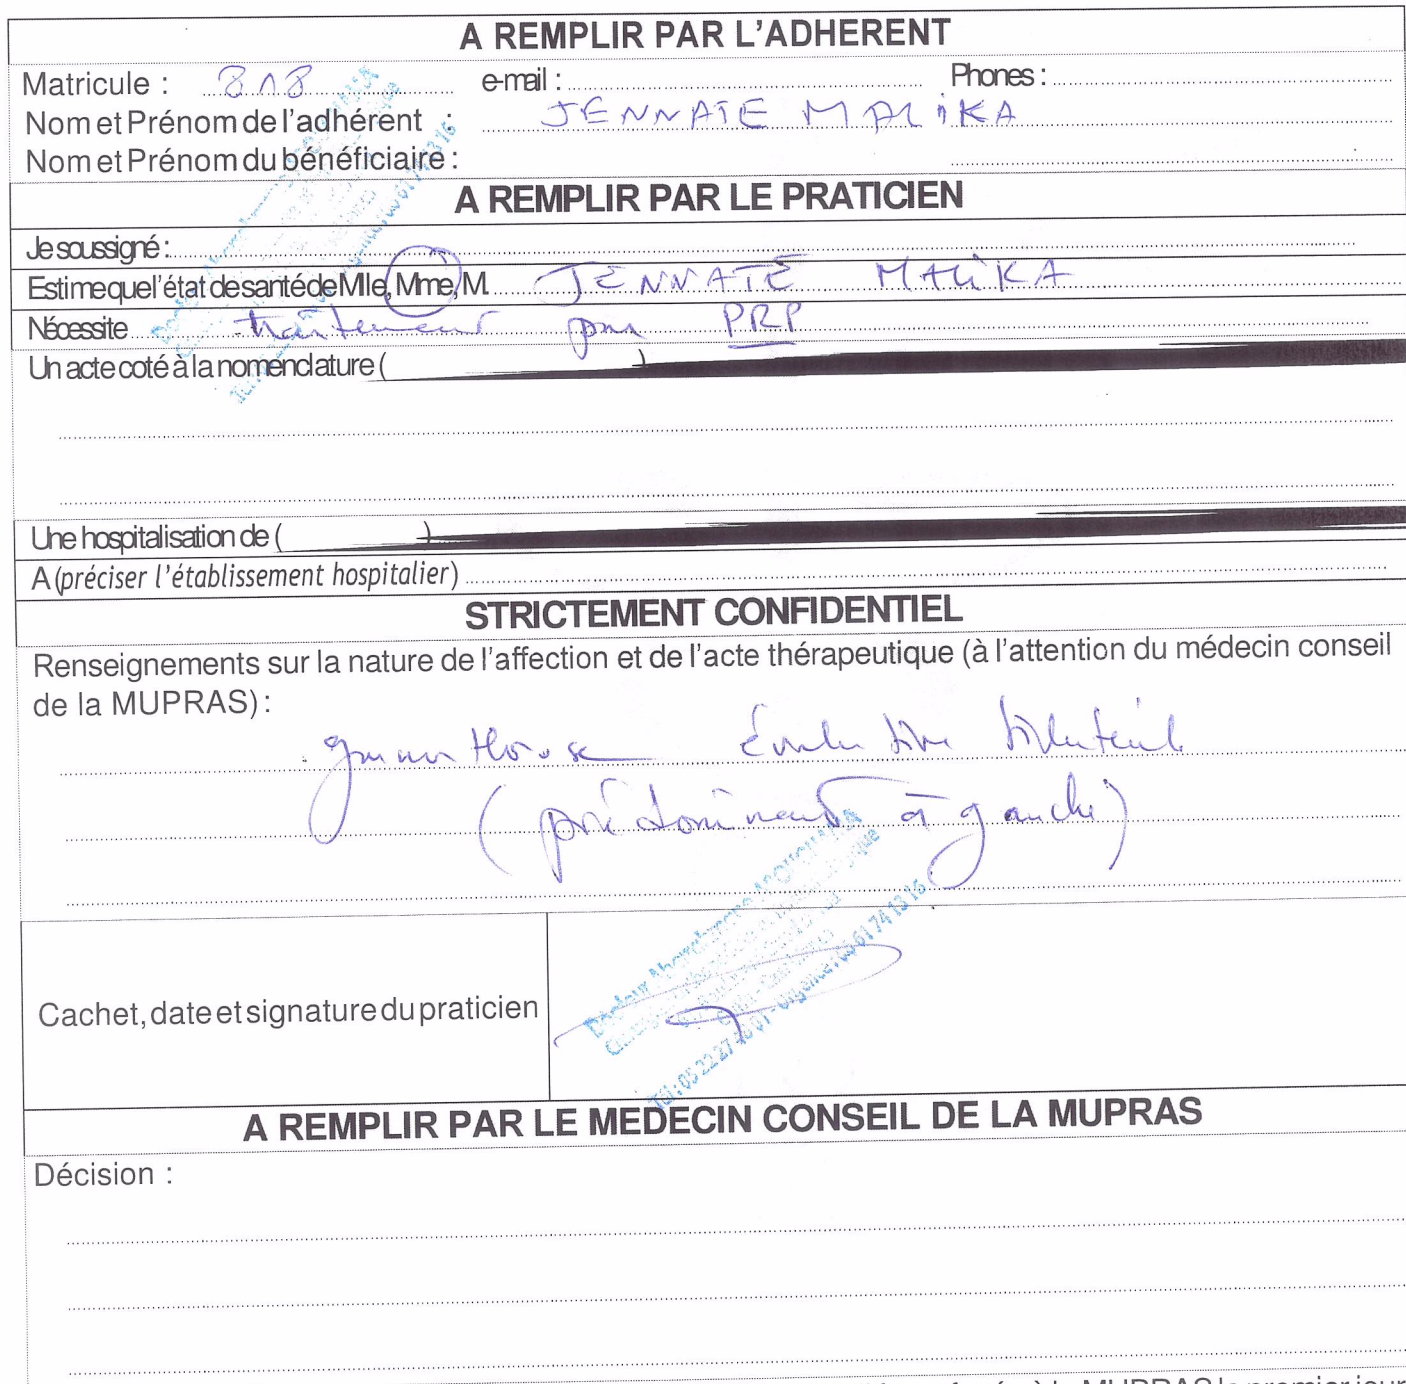 A REMPLIR PAR L'ADHERENT
Matricule : 818 e-mail : Phones :
Nom et Prénom de l'adhérent : JENNATE MALIKA
Nom et Prénom du bénéficiaire :
A REMPLIR PAR LE PRATICIEN
Je soussigné :
Estime que l'état de santé de Mlle, Mme, M. JENNATE MALIKA
Nécessite traitement par PRP
Un acte coté à la nomenclature ( )
Une hospitalisation de ( )
A (préciser l'établissement hospitalier)
STRICTEMENT CONFIDENTIEL
Renseignements sur la nature de l'affection et de l'acte thérapeutique (à l'attention du médecin conseil
de la MUPRAS) :
gonarthrose évolutive bilatérale
(prédominant à gauche)
Docteur
Urgence : 06 61 74 13 16
Tél : 05 22 27
Cachet, date et signature du praticien
A REMPLIR PAR LE MEDECIN CONSEIL DE LA MUPRAS
Décision :
à la MUPRAS le premier jour